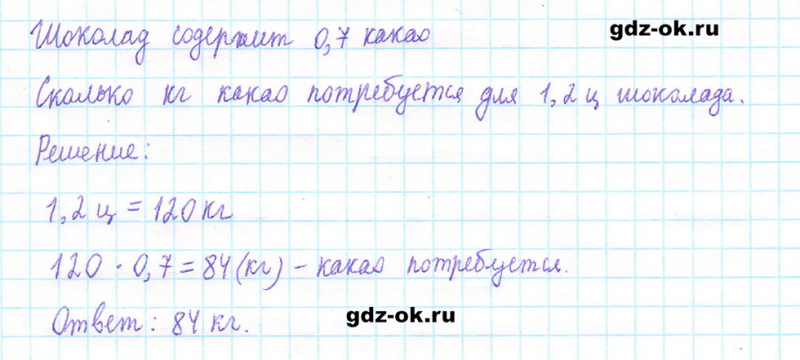 Шоколад содержит 0,7 какао
gdz-ok.ru
Сколько кг какао потребуется для 1,2 ц шоколада.
Решение:
1,2 ц = 120 кг
120 · 0,7 = 84 (кг) – какао потребуется.
Ответ: 84 кг.
gdz-ok.ru